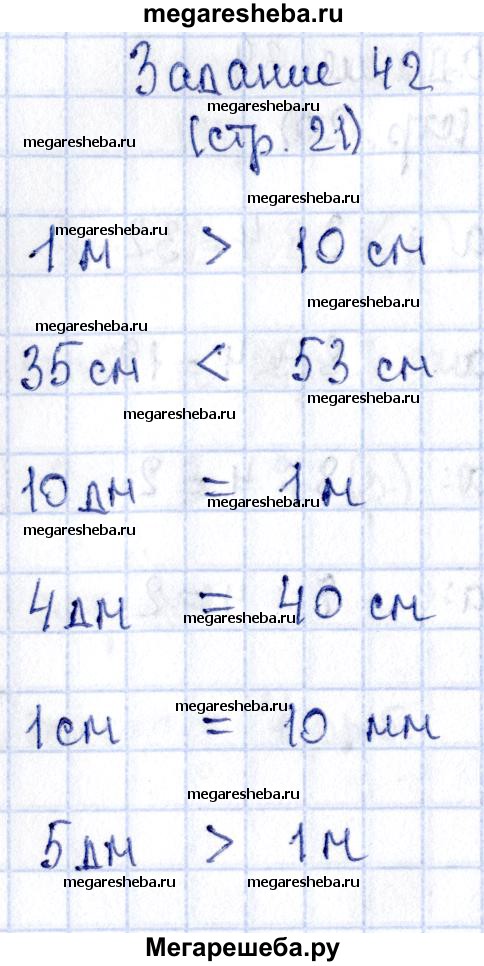 megaresheba.ru
Задание 42
megaresheba.ru
megaresheba.ru
(стр. 21)
megaresheba.ru
1 м > 10 см
megaresheba.ru
megaresheba.ru
35 см < 53 см
megaresheba.ru
megaresheba.ru
10 дм = 1 м
megaresheba.ru
megaresheba.ru
4 дм = 40 см
megaresheba.ru
megaresheba.ru
1 см = 10 мм
megaresheba.ru
5 дм > 1 м
megaresheba.ru
megaresheba.ru
Мегарешеба.ру